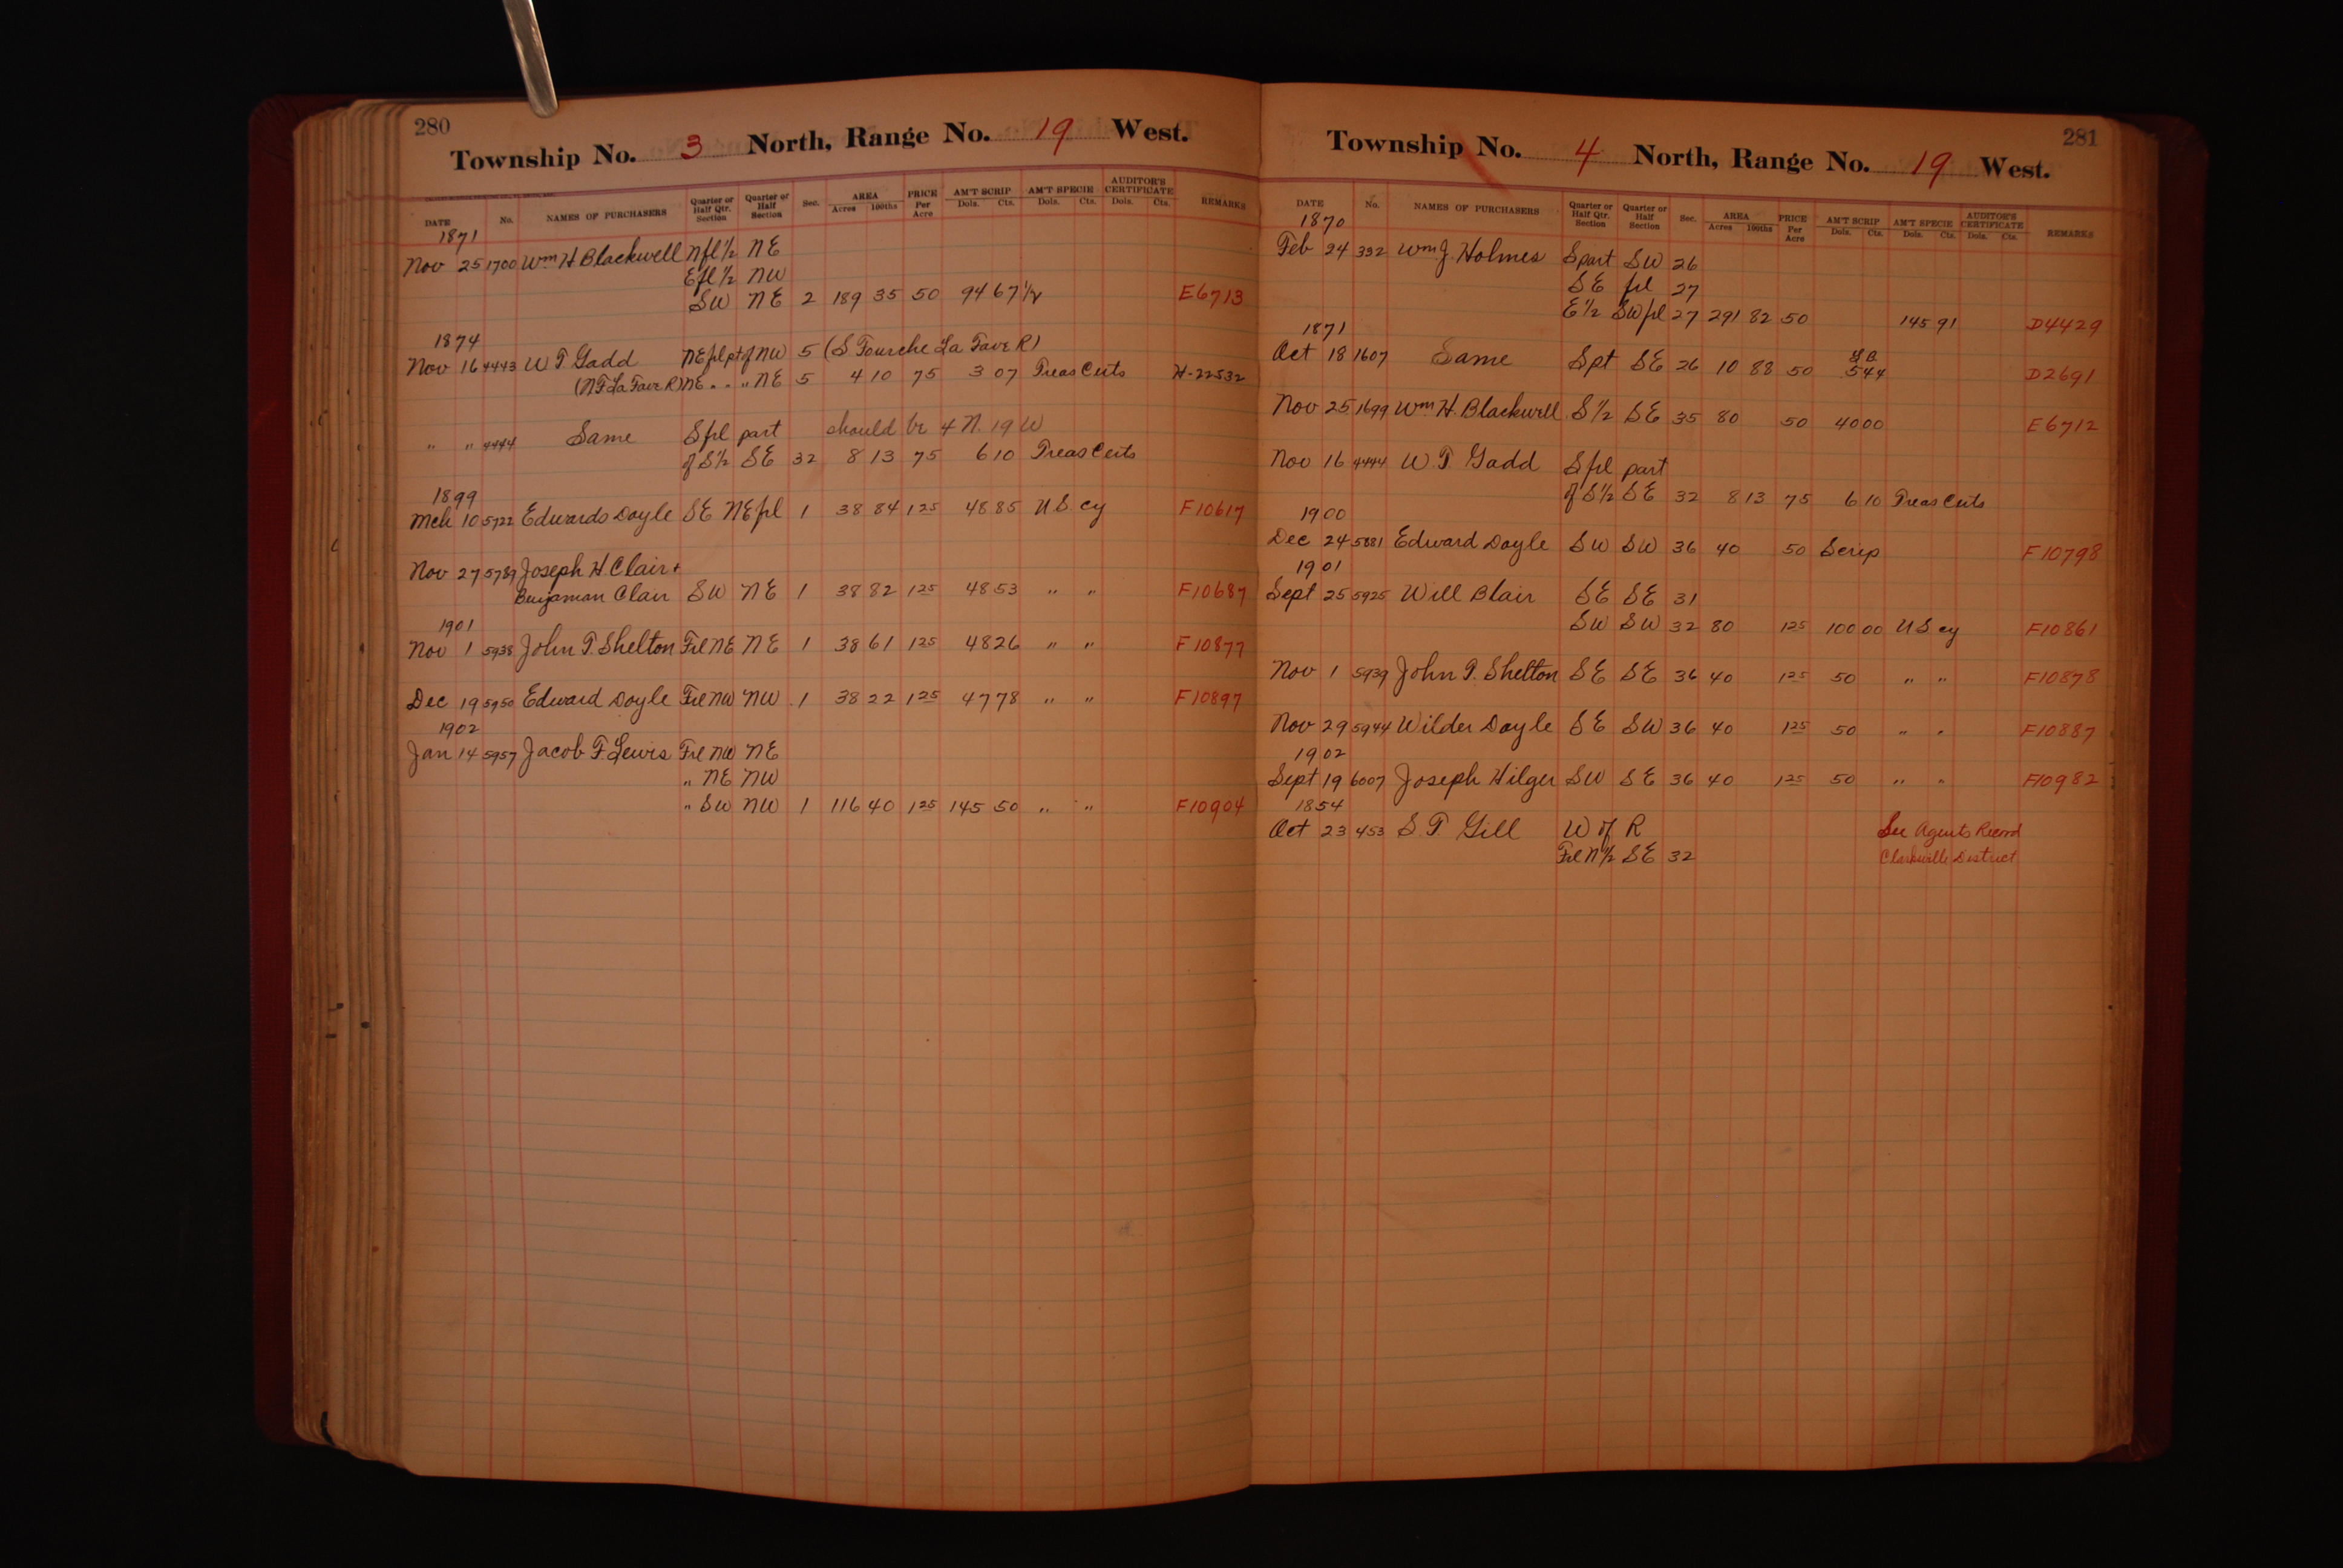 280
Township No. 3 North, Range No. 19 West.
DATE No. NAMES OF PURCHASERS Quarter or Half Qtr. Section Quarter or Half Section Sec. AREA Acres 100ths PRICE Per Acre AM'T SCRIP Dols. Cts. AM'T SPECIE Dols. Cts. AUDITOR'S CERTIFICATE Dols. Cts. REMARKS
1871
Nov 25 1700 Wm H Blackwell Nfl½ NE
Efl½ NW
SW NE 2 189 35 50 94 67½ E6713
1874
Nov 16 4443 W T Gadd NEfrl pt of NW 5 (S Fourche La Fave R)
(N F La Fave R) NE " " " NE 5 4 10 75 3 07 Treas Certs H-22532
" " 4444 Same Sfrl part should be 4 N. 19 W
of S½ SE 32 8 13 75 6 10 Treas Certs
1899
Mch 10 5722 Edwards Doyle SE NEfrl 1 38 84 1 25 48 85 U.S. cy F10617
Nov 27 5789 Joseph H Clair +
Benjaman Clair SW NE 1 38 82 1 25 48 53 " " F10687
1901
Nov 1 5938 John T. Shelton Frl NE NE 1 38 61 1 25 48 26 " " F10877
Dec 19 5950 Edward Doyle Frl NW NW 1 38 22 1 25 47 78 " " F10897
1902
Jan 14 5957 Jacob F. Lewis Frl NW NE
" NE NW
" SW NW 1 116 40 1 25 145 50 " " F10904
281
Township No. 4 North, Range No. 19 West.
DATE No. NAMES OF PURCHASERS Quarter or Half Qtr. Section Quarter or Half Section Sec. AREA Acres 100ths PRICE Per Acre AM'T SCRIP Dols. Cts. AM'T SPECIE Dols. Cts. AUDITOR'S CERTIFICATE Dols. Cts. REMARKS
1870
Feb 24 332 Wm J. Holmes S part SW 26
SE frl 27
E½ SWfrl 27 291 82 50 145 91 D4429
1871
Oct 18 1607 Same Spt SE 26 10 88 50 5 44 D2691
Nov 25 1699 Wm H. Blackwell S½ SE 35 80 50 40 00 E6712
Nov 16 4444 W. T Gadd Sfrl part
of S½ SE 32 8 13 75 6 10 Treas Certs
1900
Dec 24 5881 Edward Doyle SW SW 36 40 50 Scrip F10798
1901
Sept 25 5925 Will Blair SE SE 31
SW SW 32 80 1 25 100 00 U S cy F10861
Nov 1 5939 John T. Shelton SE SE 36 40 1 25 50 " " F10878
Nov 29 5944 Wilder Doyle SE SW 36 40 1 25 50 " " F10887
1902
Sept 19 6007 Joseph Hilger SW SE 36 40 1 25 50 " " F10982
1854
Oct 23 453 S. T Gill W of R See Agents Record
Frl N½ SE 32 Clarksville District